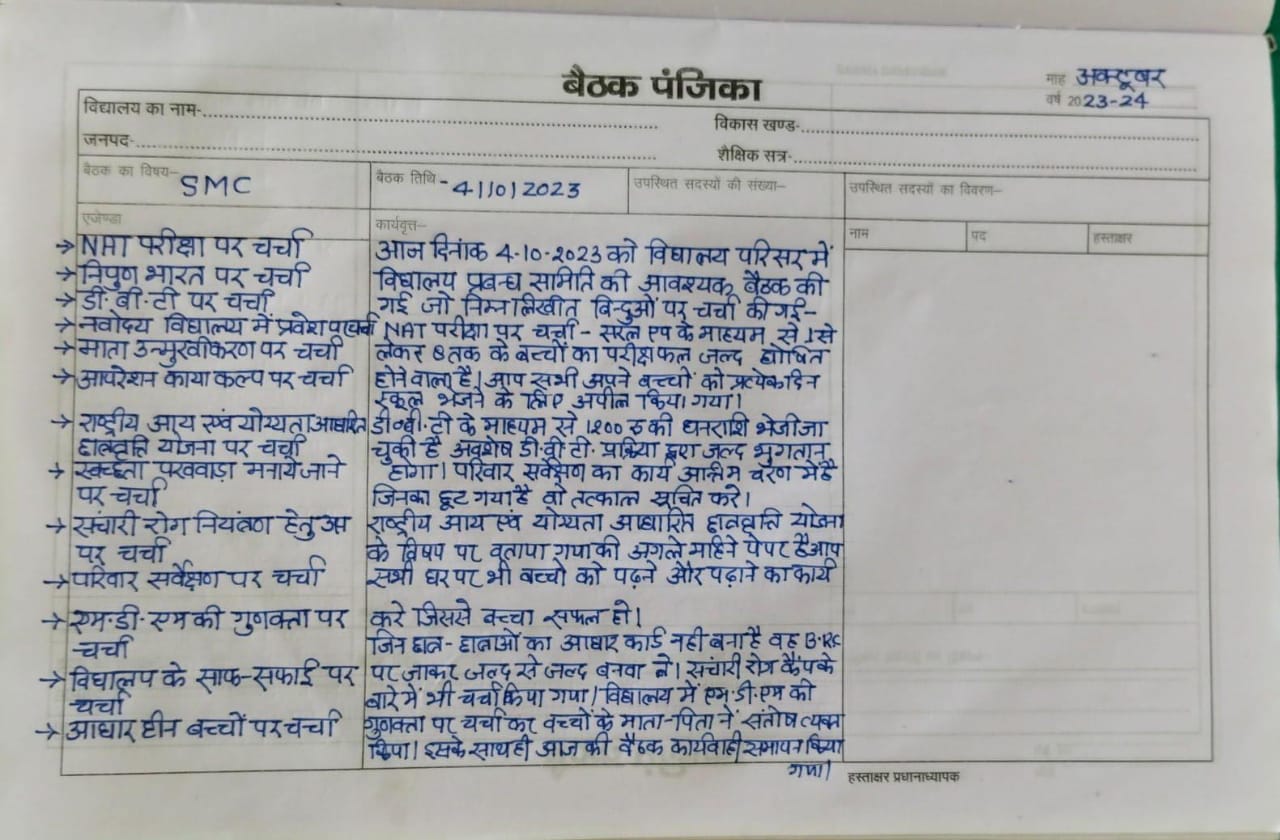 बैठक पंजिका
माह अक्टूबर
वर्ष 2023-24
विद्यालय का नाम-
विकास खण्ड-
जनपद-
शैक्षिक सत्र-
बैठक का विषय- SMC
बैठक तिथि - 4/10/2023
उपस्थित सदस्यों की संख्या-
उपस्थित सदस्यों का विवरण-
एजेण्डा
कार्यवृत्त-
नाम
पद
हस्ताक्षर
→ NAT परीक्षा पर चर्चा
→ निपुण भारत पर चर्चा
→ डी.बी.टी पर चर्चा
→ नवोदय विद्यालय में प्रवेश पर चर्चा
→ माता उन्मुखीकरण पर चर्चा
→ आपरेशन काया कल्प पर चर्चा
→ राष्ट्रीय आय एवं योग्यता आधारित
छात्रवृत्ति योजना पर चर्चा
→ स्वच्छता पखवाड़ा मनाये जाने
पर चर्चा
→ संचारी रोग नियंत्रण हेतु
पर चर्चा
→ परिवार सर्वेक्षण पर चर्चा
→ एम.डी.एम की गुणवक्ता पर
चर्चा
→ विद्यालय के साफ-सफाई पर
चर्चा
→ आधार हीन बच्चों पर चर्चा
आज दिनांक 4-10-2023 को विद्यालय परिसर में
विद्यालय प्रबन्ध समिति की आवश्यक बैठक की
गई जो निम्नलिखीत बिन्दुओं पर चर्चा की गई-
NAT परीक्षा पर चर्चा - सरल एप के माध्यम से 1 से
लेकर 8 तक के बच्चों का परीक्षाफल जल्द घोषित
होने वाला है। आप सभी अपने बच्चों को प्रत्येक दिन
स्कूल भेजने के लिए अपील किया गया।
डी०बी.टी के माध्यम से 1200 रु की धनराशि भेजी जा
चुकी है अवशेष डी.बी.टी. प्रक्रिया द्वारा जल्द भुगतान
होगा। परिवार सर्वेक्षण का कार्य अन्तिम चरण में है
जिनका छूट गया है वो तत्काल सूचित करे।
राष्ट्रीय आय एवं योग्यता आधारित छात्रवृत्ति योजना
के विषय पर बताया गया की अगले महिने पेपर है आप
सभी घर पर भी बच्चो को पढ़ने और पढ़ाने का कार्य
करे जिससे बच्चा सफल हो।
जिन छात्र-छात्राओं का आधार कार्ड नही बना है वह B.RC
पर जाकर जल्द से जल्द बनवा ले। संचारी रोग कैंप के
बारे में भी चर्चा किया गया। विद्यालय में एम.डी.एम की
गुणवक्ता पर चर्चा कर बच्चों के माता-पिता ने संतोष व्यक्त
किया। इसके साथ ही आज की बैठक कार्यवाही समापन किया
गया।
हस्ताक्षर प्रधानाध्यापक